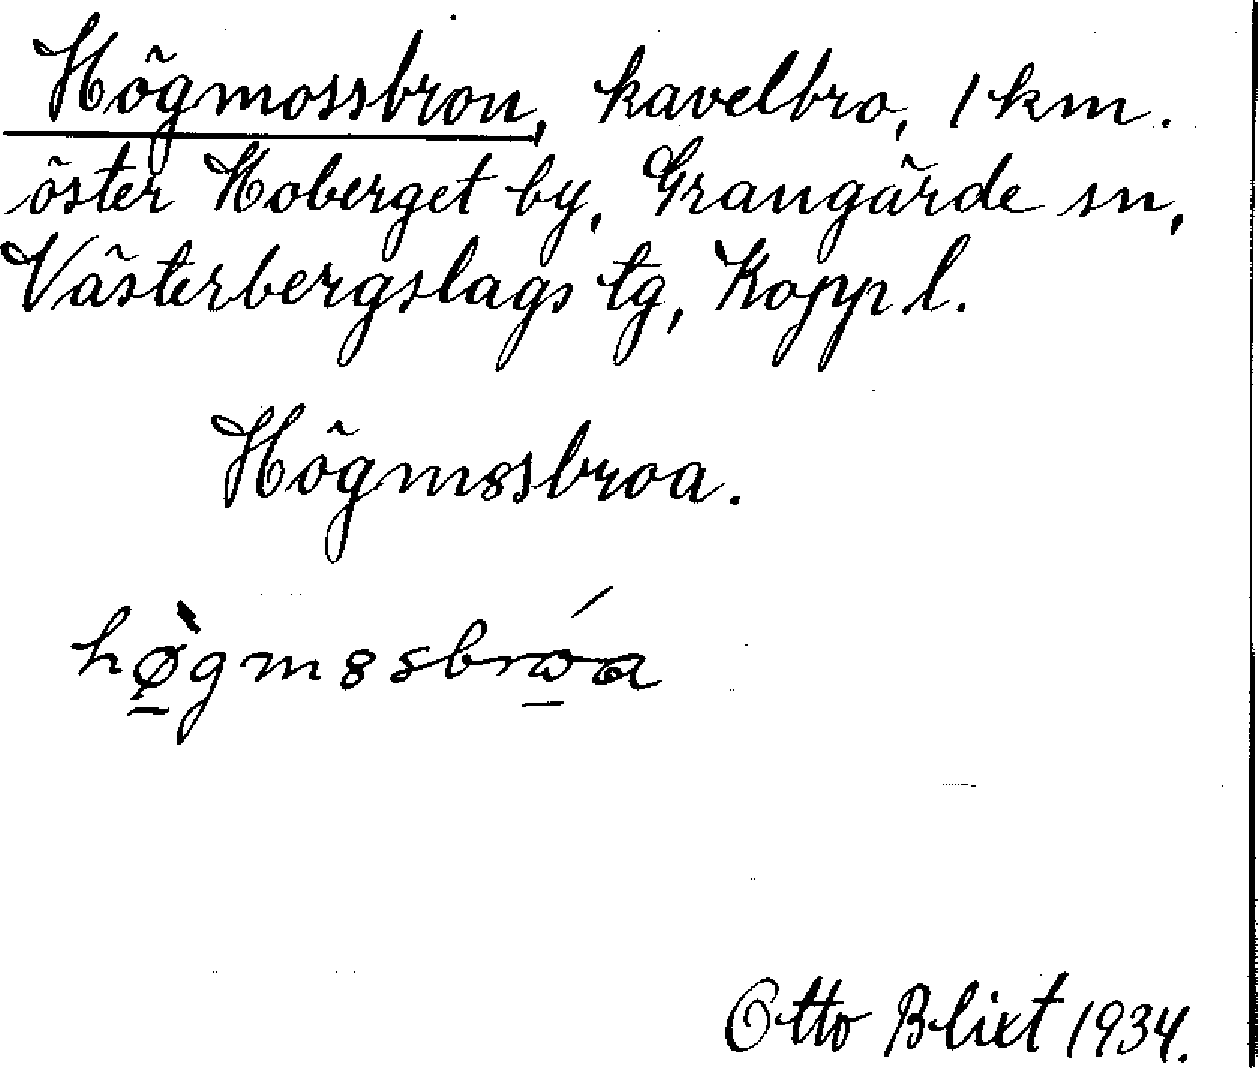 Högmossbron, kavelbro, 1 km.
öster Hoberget by, Grangärde sn,
Västerbergslags tg, Kopp l.
Högm8ssbroa.
hø̱̀gm8sbrώ̱a
Otto Blixt 1934.